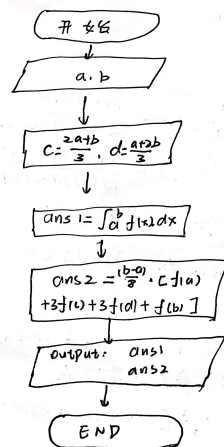 开始
a. b
c = (2a+b)/3 , d = (a+2b)/3
ans 1 = ∫_a^b f(x) dx
ans 2 = (b-a)/8 · [f(a)
+3f(c) + 3f(d) + f(b)]
output: ans1
ans2
END